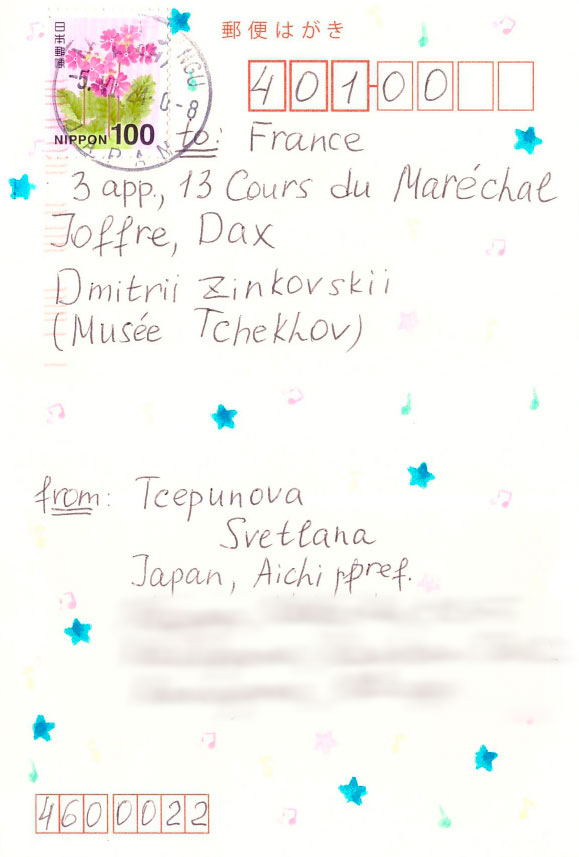 日本郵便
NIPPON 100
JAPAN
郵便はがき
401-00
to: France
3 app., 13 Cours du Maréchal
Joffre, Dax
Dmitrii Zinkovskii
(Musée Tchekhov)
from: Tcepunova
Svetlana
Japan, Aichi pref.
4600022